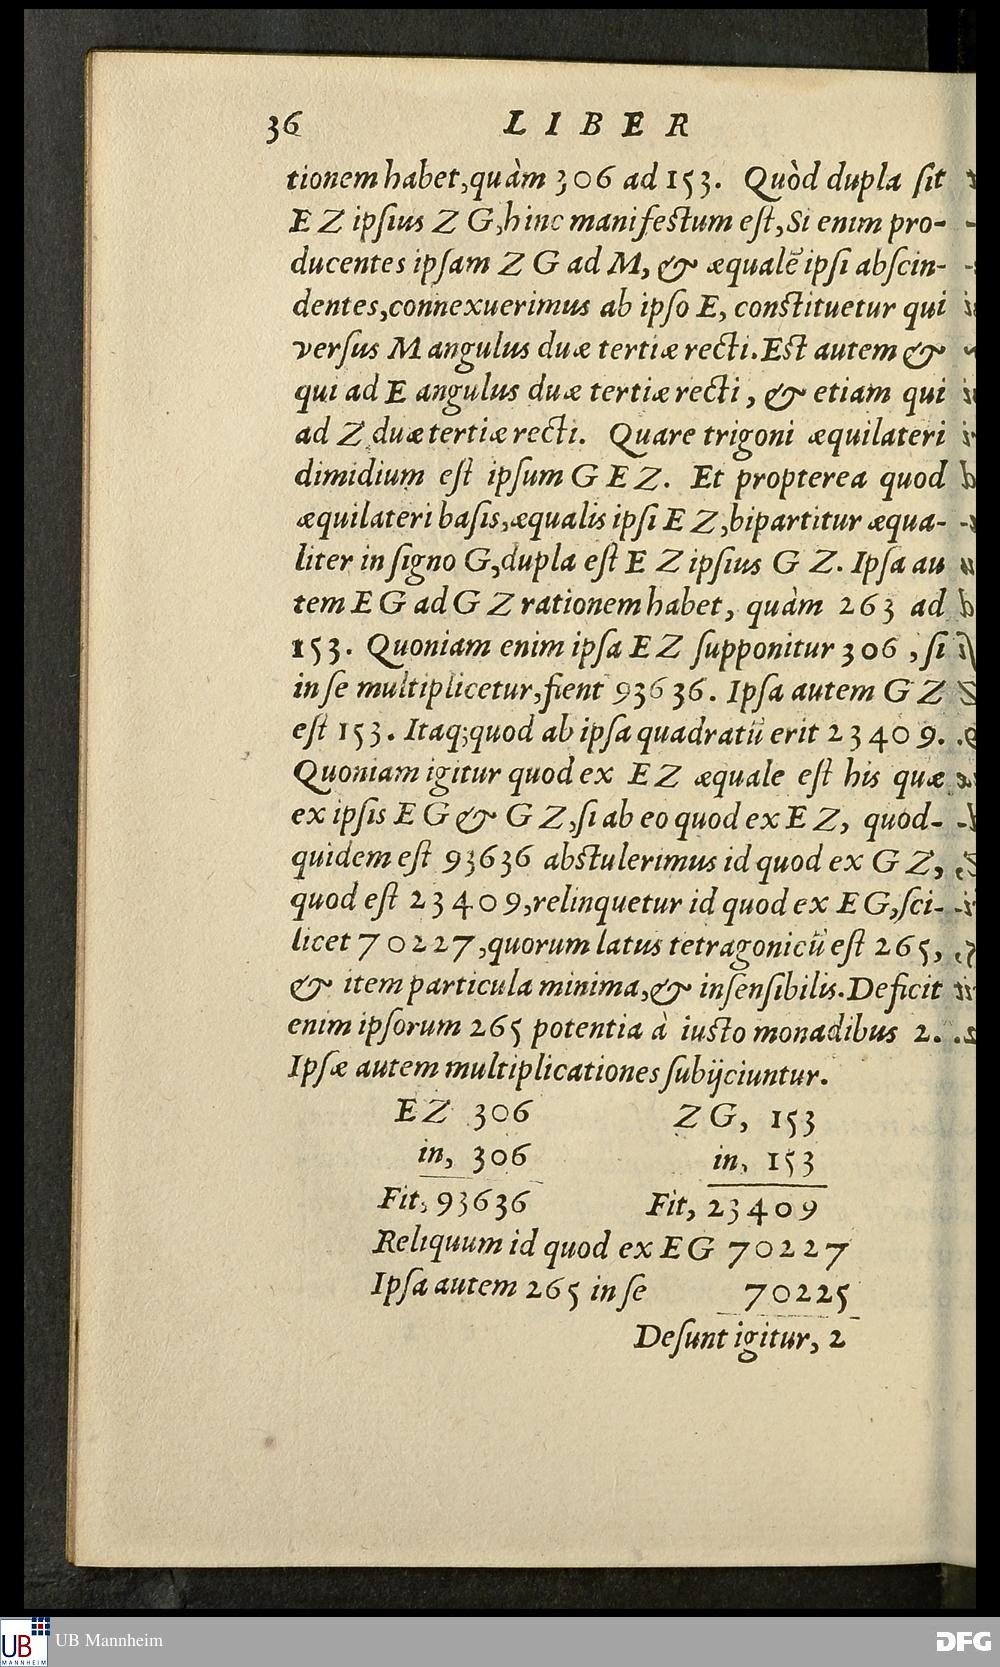 36 LIBER
tionem habet, quàm 306 ad 153. Quòd dupla ſit
E Z ipſius Z G, hinc manifeſtum eſt, Si enim pro-
ducentes ipſam Z G ad M, & æqualẽ ipſi abſcin-
dentes, connexuerimus ab ipſo E, conſtituetur qui
verſus M angulus duæ tertiæ recti. Eſt autem &
qui ad E angulus duæ tertiæ recti, & etiam qui
ad Z duæ tertiæ recti. Quare trigoni æquilateri
dimidium eſt ipſum G E Z. Et propterea quod
æquilateri baſis, æqualis ipſi E Z, bipartitur æqua-
liter in ſigno G, dupla eſt E Z ipſius G Z. Ipſa au
tem E G ad G Z rationem habet, quàm 263 ad
153. Quoniam enim ipſa E Z ſupponitur 306, ſi
in ſe multiplicetur, fient 93636. Ipſa autem G Z
eſt 153. Itaq; quod ab ipſa quadratũ erit 23409.
Quoniam igitur quod ex E Z æquale eſt his quæ
ex ipſis E G & G Z, ſi ab eo quod ex E Z, quod-
quidem eſt 93636 abſtulerimus id quod ex G Z,
quod eſt 23409, relinquetur id quod ex E G, ſci-
licet 70227, quorum latus tetragonicũ eſt 265,
& item particula minima, & inſenſibilis. Deficit
enim ipſorum 265 potentia à iuſto monadibus 2.
Ipſæ autem multiplicationes ſubijciuntur.
E Z 306 Z G, 153
in, 306 in, 153
Fit, 93636 Fit, 23409
Reliquum id quod ex E G 70227
Ipſa autem 265 in ſe 70225
Deſunt igitur, 2
UB MANNHEIM UB Mannheim DFG